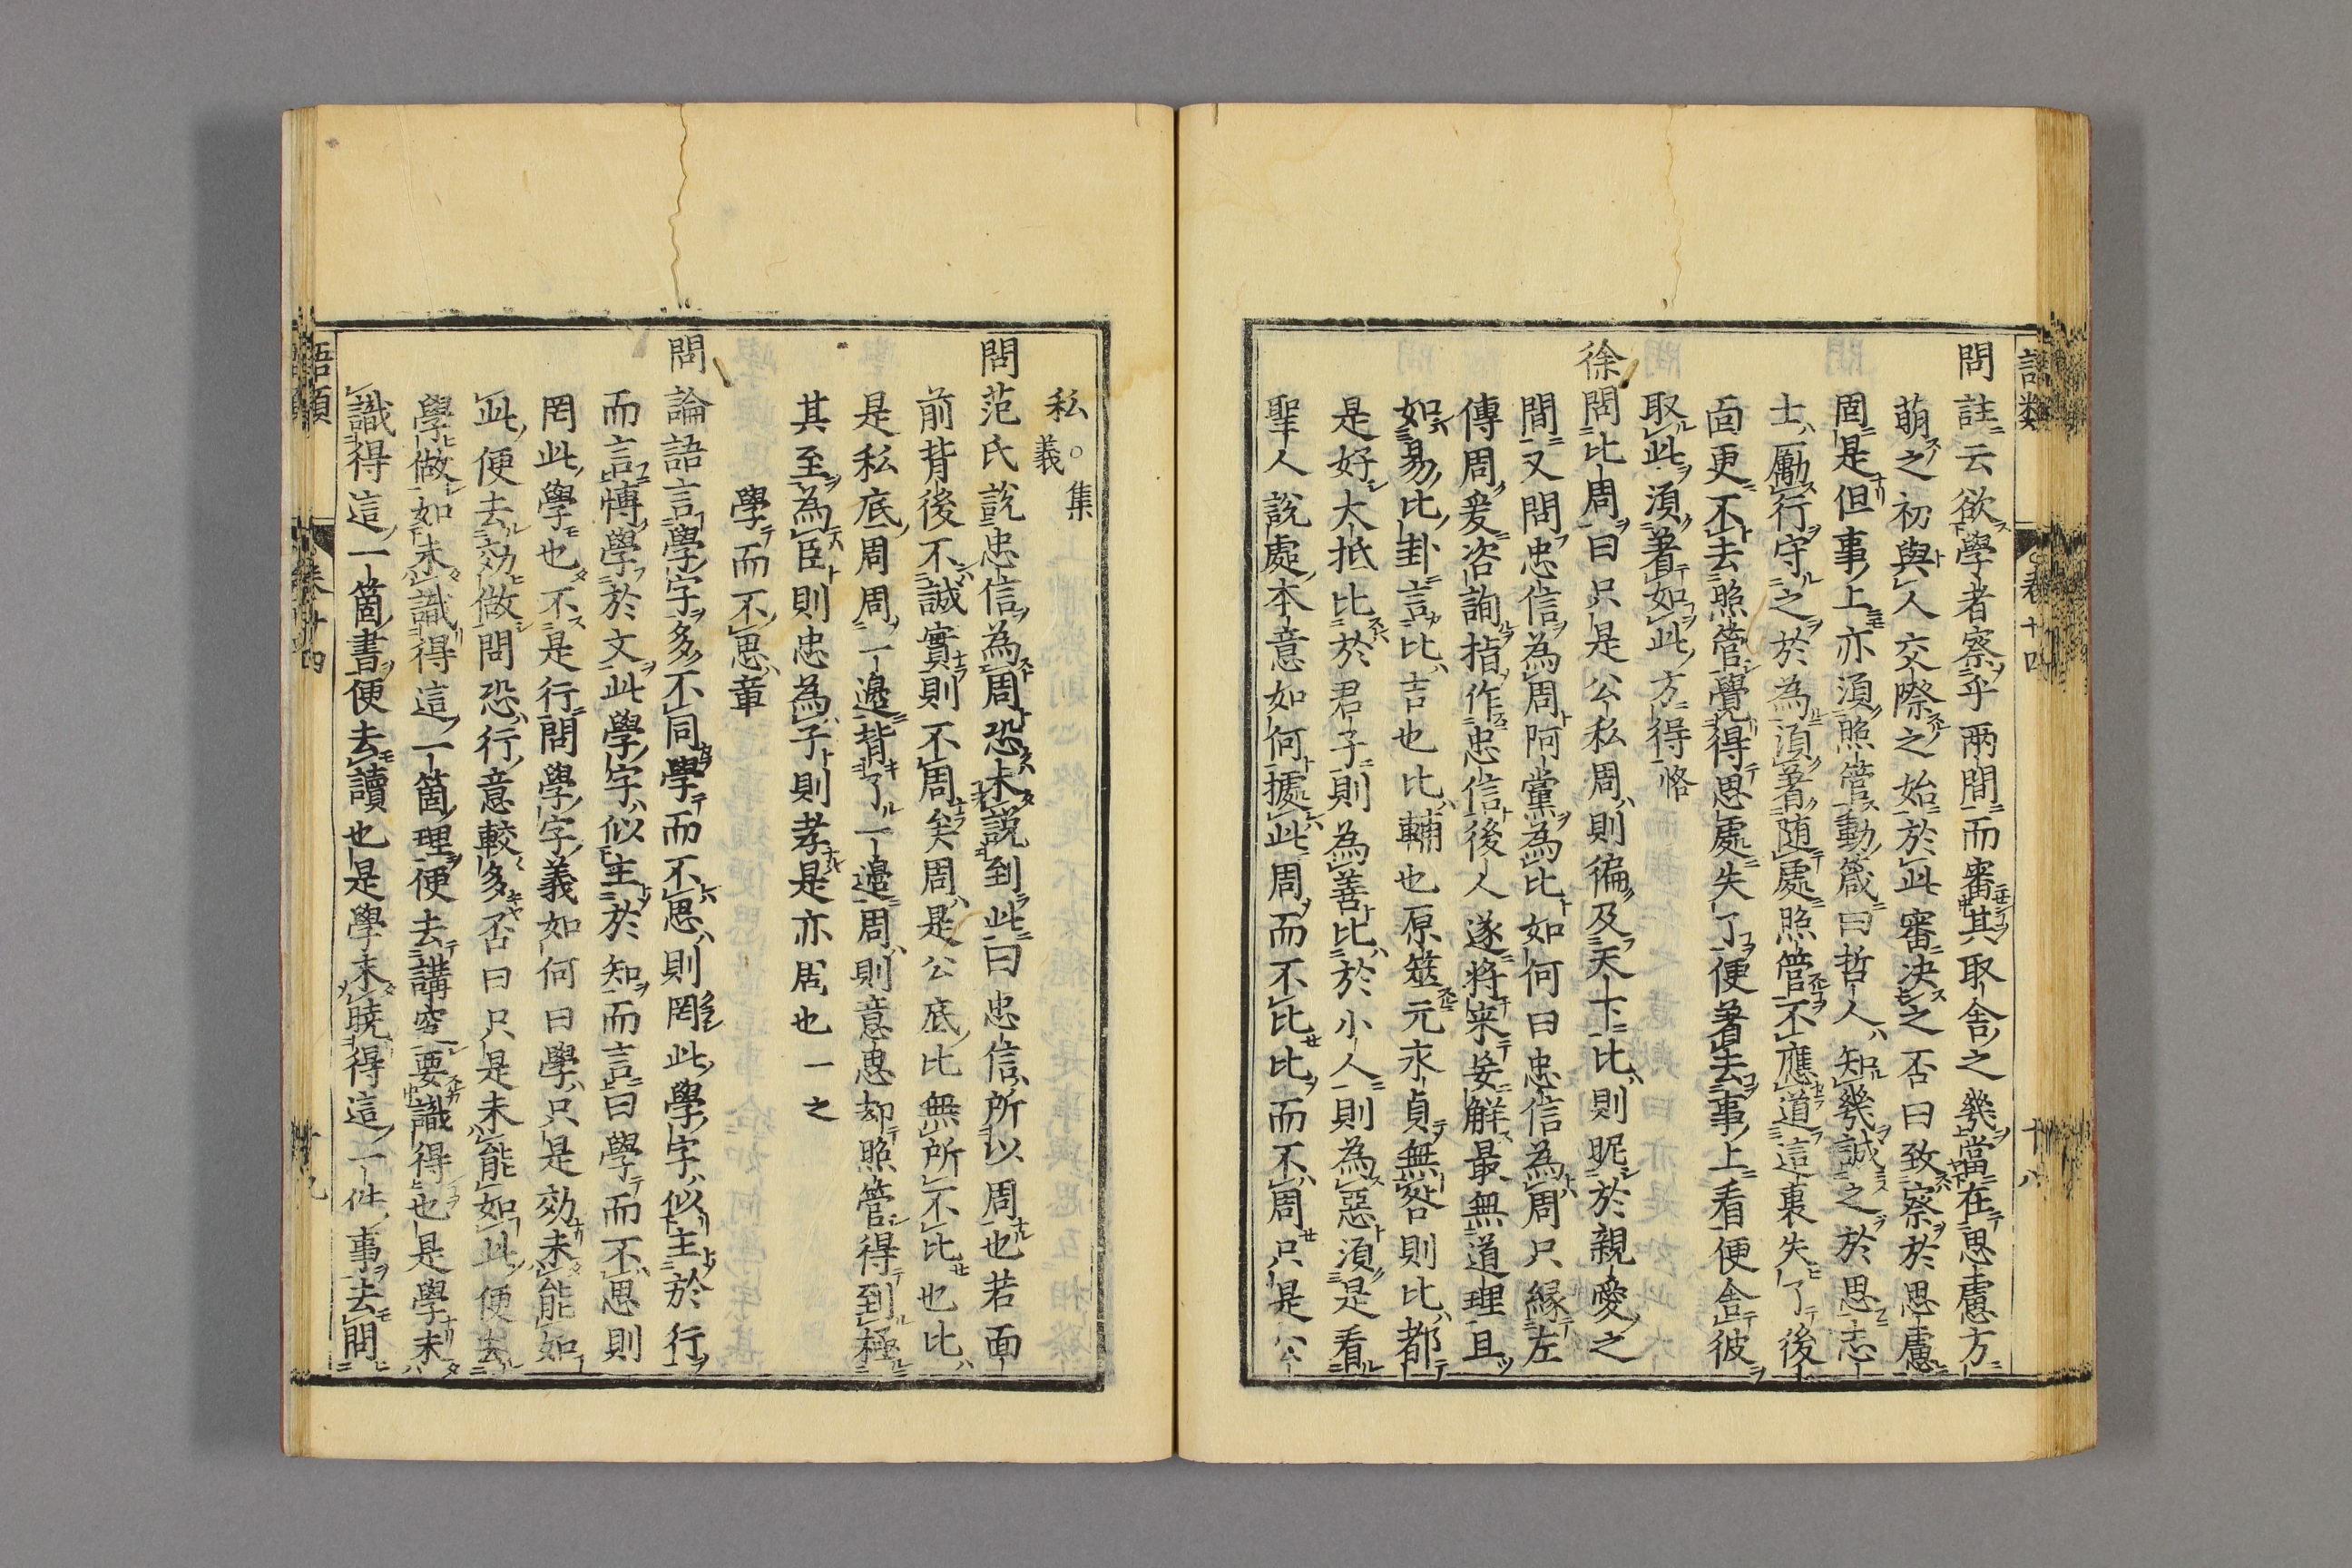 語類
卷十四
十八
問註云欲學者察乎兩間而審其取舍之幾當在思慮方
萌之初與人交際之始於此審決之否曰致察於思慮
固是但事上亦須照管動箴曰哲人知幾誠之於思志
士勵行守之於為須著随處照管不應道這裏失了後
面更不去照管覺得思處失了便著去事上看便舍彼
取此須著如此方得恪
徐問比周曰只是公私周則徧及天下比則昵於親愛之
間又問忠信為周阿黨為比如何曰忠信為周只緣左
傳周爰咨詢指作忠信後人遂将来妄解最無道理且
如易比卦言比吉也比輔也原筮元永貞無咎則比都
是好大抵比於君子則為善比於小人則為惡須是看
聖人說處本意如何據此周而不比比而不周只是公
私○義集
問范氏說忠信為周恐未説到此曰忠信所以周也若面
前背後不誠實則不周矣周是公底比無所不比也比
是私底周周一邊背了一邊周則意思却照管得到極
其至為臣則忠為子則孝是亦周也一之
學而不思章
問論語言學字多不同學而不思則罔此學字似主於行
而言博學於文此學字似主於知而言曰學而不思則
罔此學也不是行問學字義如何曰學只是効未能如
此便去効做問恐行意較多否曰只是未能如此便去
學做如未識得這一箇理便去講究要識得也是學未
識得這一箇書便去讀也是學未曉得這一件事去問
語類
卷十四
十九